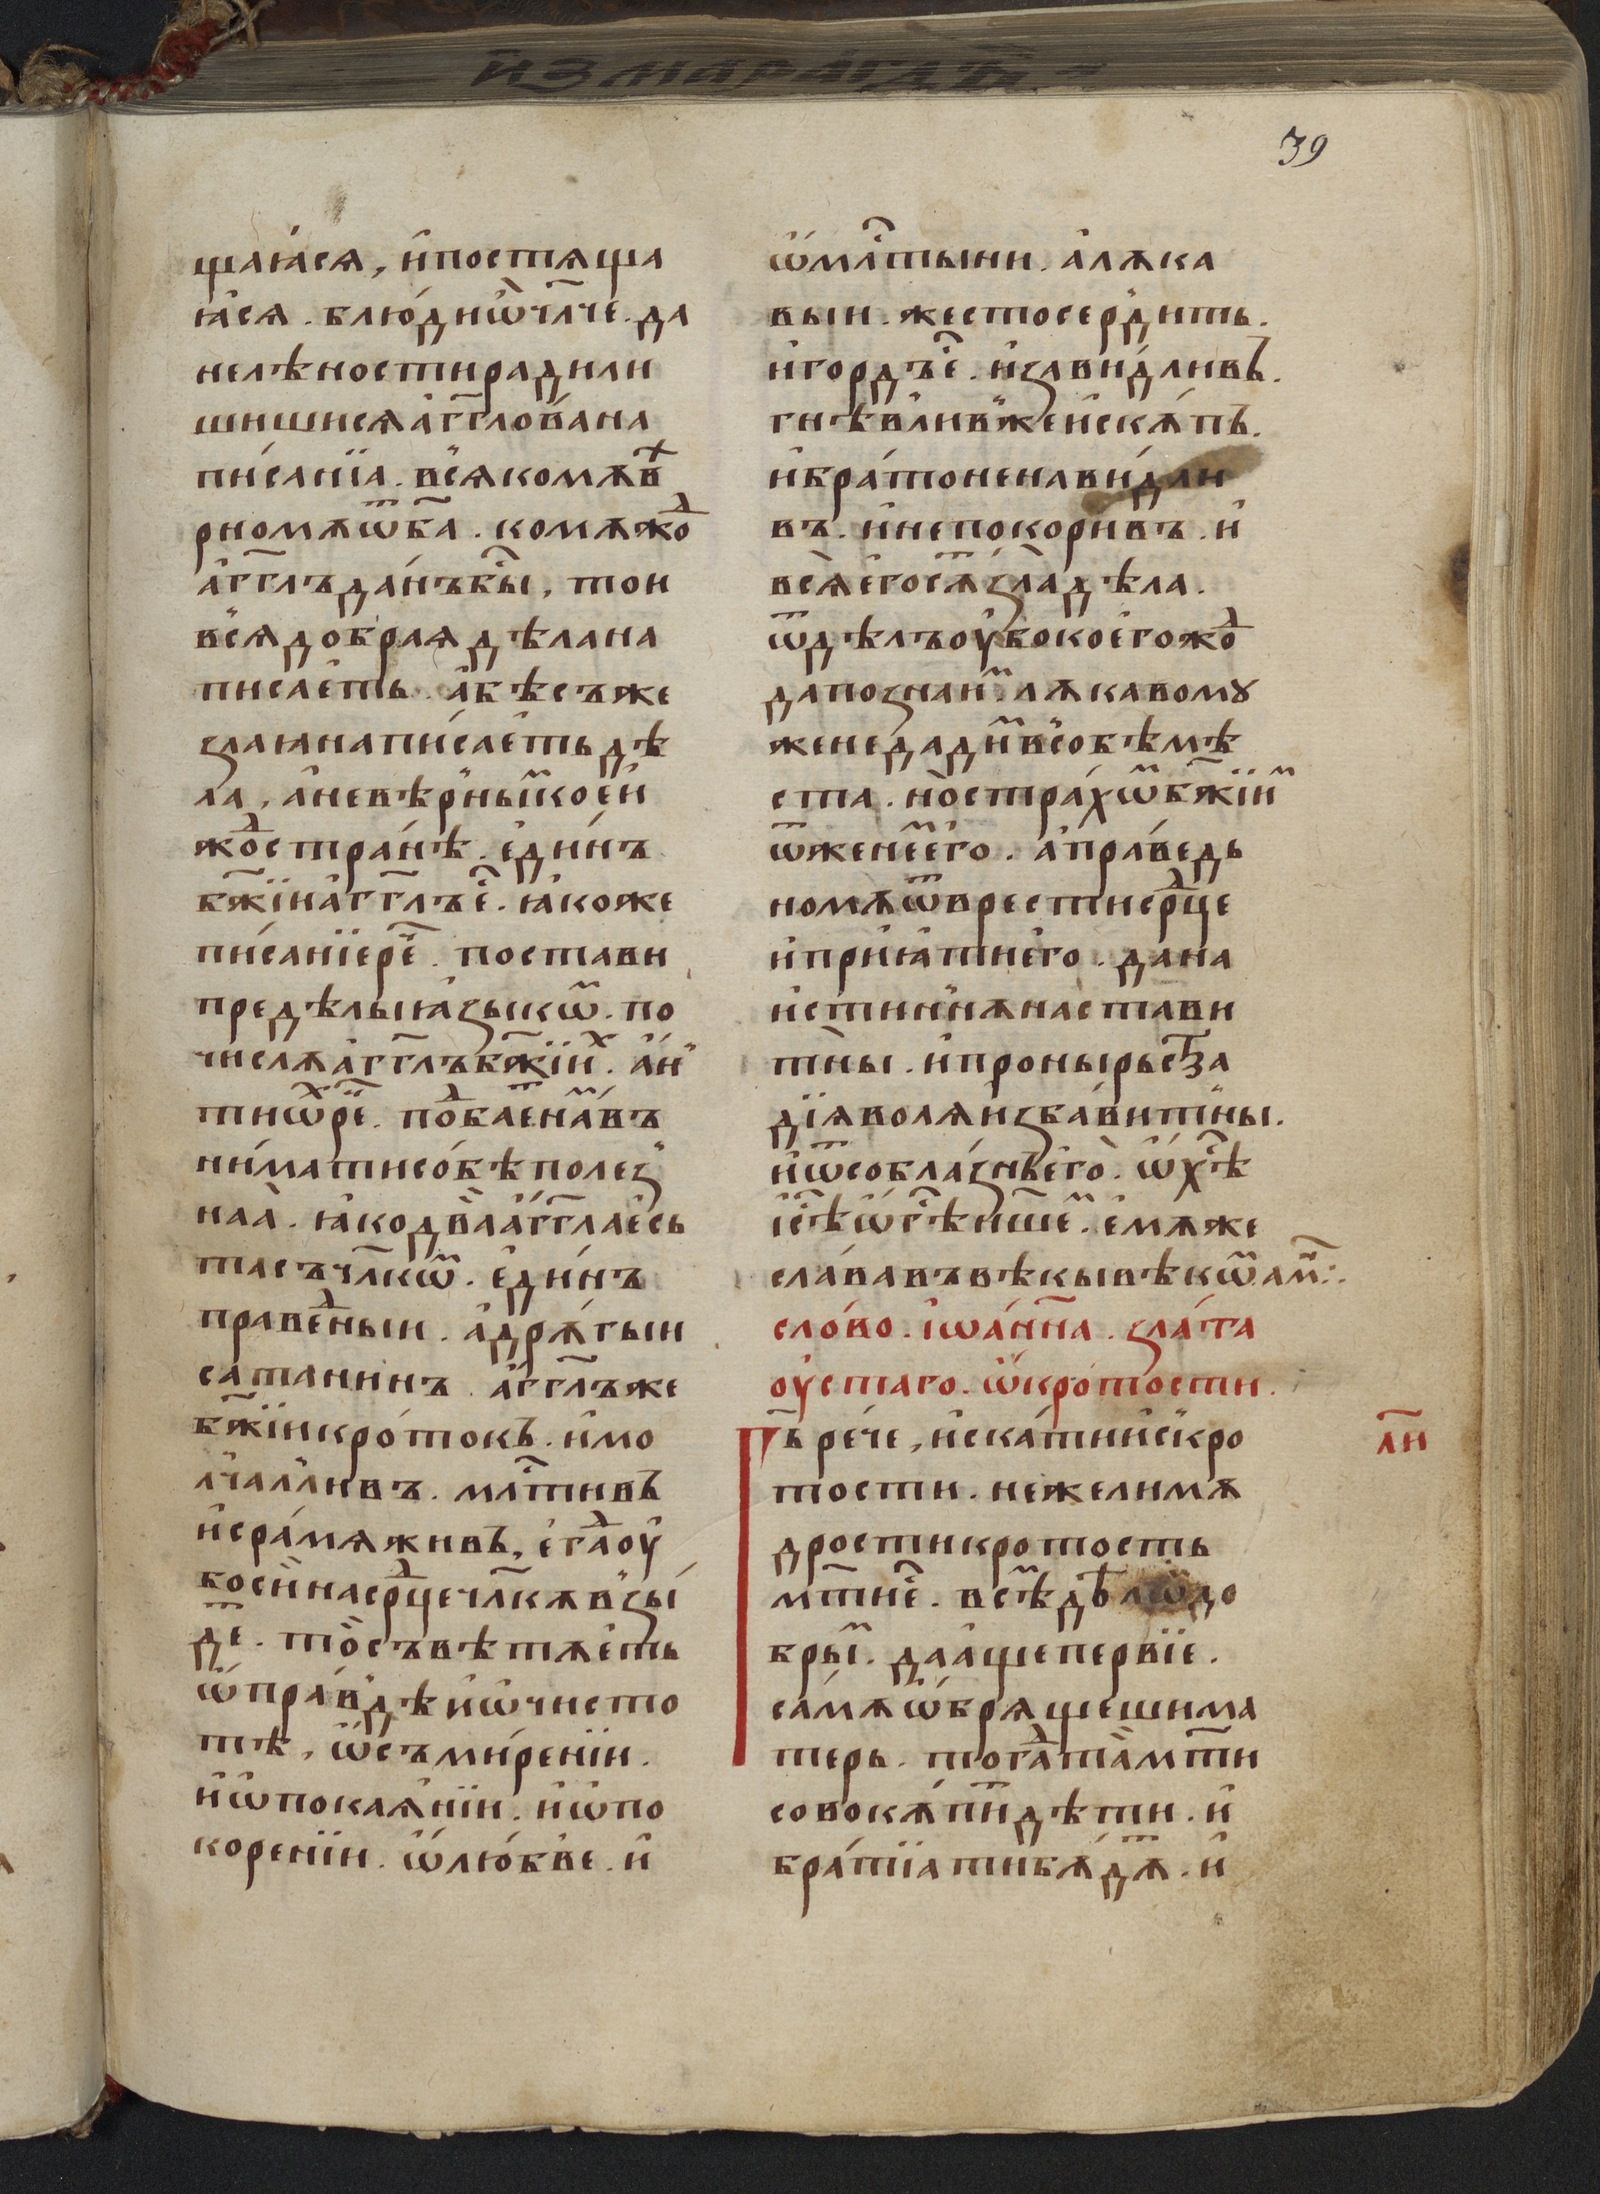 измарагдъ
39
щаꙗ́сѧ, и҆постѧща
ꙗ҆сѧ. блю́диѿ҆ чл҃че. да
нелѣностирадили
шишисѧа҆гг҃лов́ана
пи́санїа. всѧкомѫвⷯ
рномѫѿба҃. комѫжⷣо
а҆гг҃лъда́нъбы҃, тои
всѧдобраѧдѣлана
писае҆ть. а҆бѣсъже
ѕлаꙗнапи́сае҆тьдѣ
ла, а҆невѣрныⷨкое҆и
жⷣостра́нѣ. е҆ди́нъ
бж҃їиа҆гг҃лъе҆ⷭ. ꙗ҆коже
пи́санїере҃. постави
предѣлыꙗ҆ѕыкѡⷨ. по
числѫа҆гг҃лъбж҃їиⷯ. а҆и҆
тиѡⷯре҃. поⷣбае҃на́ⷨвъ
ни́матисо́бѣполеѕ
наа̀. ꙗ҆кодва̀а҆́гг҃лае҆сь
тасъчл҃кѡⷨ. е҆ди́нъ
правеⷣныи. а҆дрѫ́гыи
сатанинъ. а҆гг҃лъже
бж҃їикро́токъ. и҆мо
лчалливъ. млⷭ҇тивъ
и҆сра́мѧживъ, е҆гⷣаоу҆
боси́насрⷣцечл҃кѫвѕы́
де҃. то̀съвѣтѫе҆ть
ѡ҆́пра́вдѣи҆ѡ҆чисто
тѣ, ѡ҆́съмѝренїи.
и҆ѡ҆покаѧ҆нїи. и҆ѡ҆по
коренїи. ѡ҆́лю́бве. и҆
ѡ҆́млⷭ҇тыни. а҆лѫка
выи. жестосердить.
и҆гордъе҆ⷭ. и҆ѕави́дливъ.
гнѣвливженскѫ́пъ.
и҆бра́тоненави́дли
въ. и҆непокоривъ. и҆
всѧ̀е҆госѫ҃ѕла̀дѣла.
ѿдѣлъоу҆бокое҆гожⷣо
дапоѕнаиⷨ. лѫкавомꙋ
жене́дадиⷨвсобѣмѣ
ста. но̀стра́хѡⷨбж҃їиⷨ
ѿженеⷨе҆го. а҆пра́ведь
номѫѿврестисрⷣце
и҆прїꙗ҆тие҆го. дана
и҆стин́нѫнастави
тъ̀ны. и҆пронырьстⷡа
дїѧволѧиѕба́витьны.
и҆ѿсобла́ѕнъе҆го̀. ѡ҆хⷭ҇ѣ
і҆с҃ѣѡ҆гⷭ҇ѣнше҃ⷨ. е҆мѫже
сла́вавъвѣкывѣкѡⷨ. ам҃и.
сло́во. і҆ѡа́н́на. ѕла́та
оу҆стаго. ѡ҆кро́тости.
Гь҃ ре́че, и҆ска́тиискро
тости. нежелимѫ
дростикротость
мт҃ие҆ⷭ. всѣⷨдѣлѡⷨдо
брыⷨ. дааще первїе.
са́мѫѡ҆брѧщешима
терь. тогⷣата̀мт҃и
совокѫ́пи́тдѣти. и҆
бра́тїатибѫ́дѫⷮ. и҆
ли҃